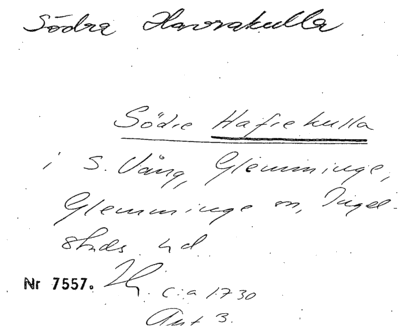 Södra Havrakulla
Södre Hafrekulla
i S. Vång, Glemminge,
Glemminge sn, Ingel-
stads hd
Nr 7557. c:a 1730
Akt 3.